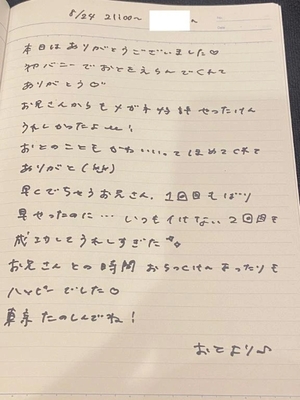 8/24 21:00〜
本日はありがとうございました♡
初バニーでおとをえらんでくれて
ありがとう♡
お兄さんからもメガネ
うれしかったよ !
おとのこともかわいいってほめてくれて
ありがと
早くでちゃうお兄さん、1回目もばり
早やったのに… いつもイけない2回目も
成功してうれしすぎた
お兄さんとの時間 おちつくけん まったりも
ハッピーでした♡
東京たのしんでね!
おとより♪